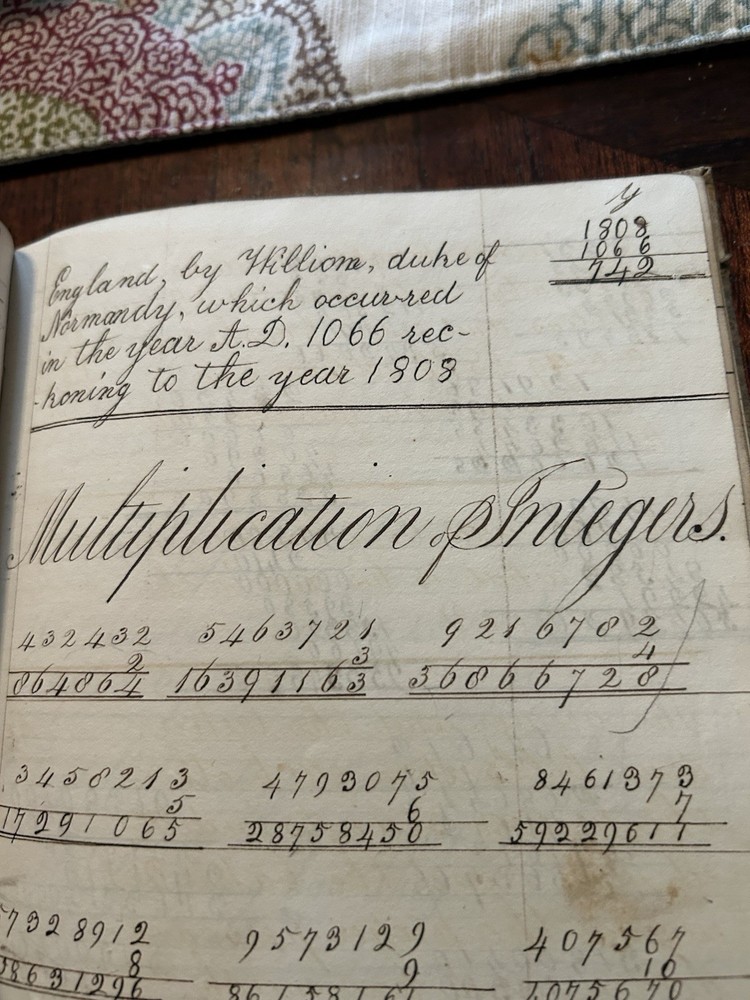 y
1808
England, by William, duke of 1066
742
Normandy, which occurred
in the year A.D. 1066 rec-
-koning to the year 1808
Multiplication of Integers.
432432 5463721 9216782
2 3 4
864864 16391163 36866728
3458213 4793075 8461373
5 6 7
17291065 28758450 59229611
7328912 9573129 407567
8 9 10
58631296 86158161 4075670